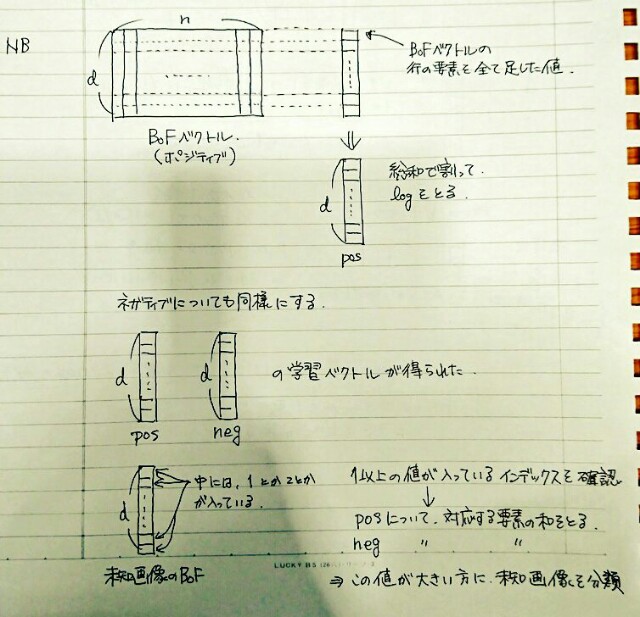 NB
n
d
BoFベクトルの
行の要素を全て足した値.
BoFベクトル.
(ポジティブ)
総和で割って.
logをとる.
d
pos
ネガティブについても同様にする.
d
d
の学習ベクトルが得られた.
pos
neg
d
中には, 1とか2とか
が入っている.
1以上の値が入っているインデックスを確認
posについて, 対応する要素の和をとる.
neg 〃 〃
LUCKY
未知画像のBoF
⇒ この値が大きい方に, 未知画像を分類